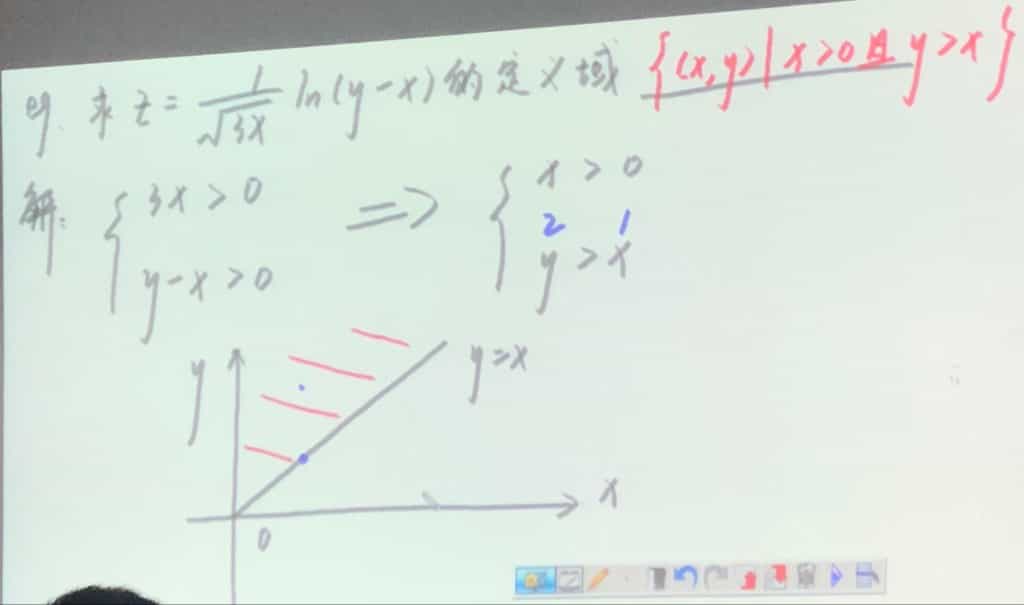 例. 求 z = 1/√3x ln(y-x) 的定义域 {(x,y)|x>0且y>x}
解: { 3x>0 => { x>0
2 1
y-x>0 y>x
y
y=x
x
0